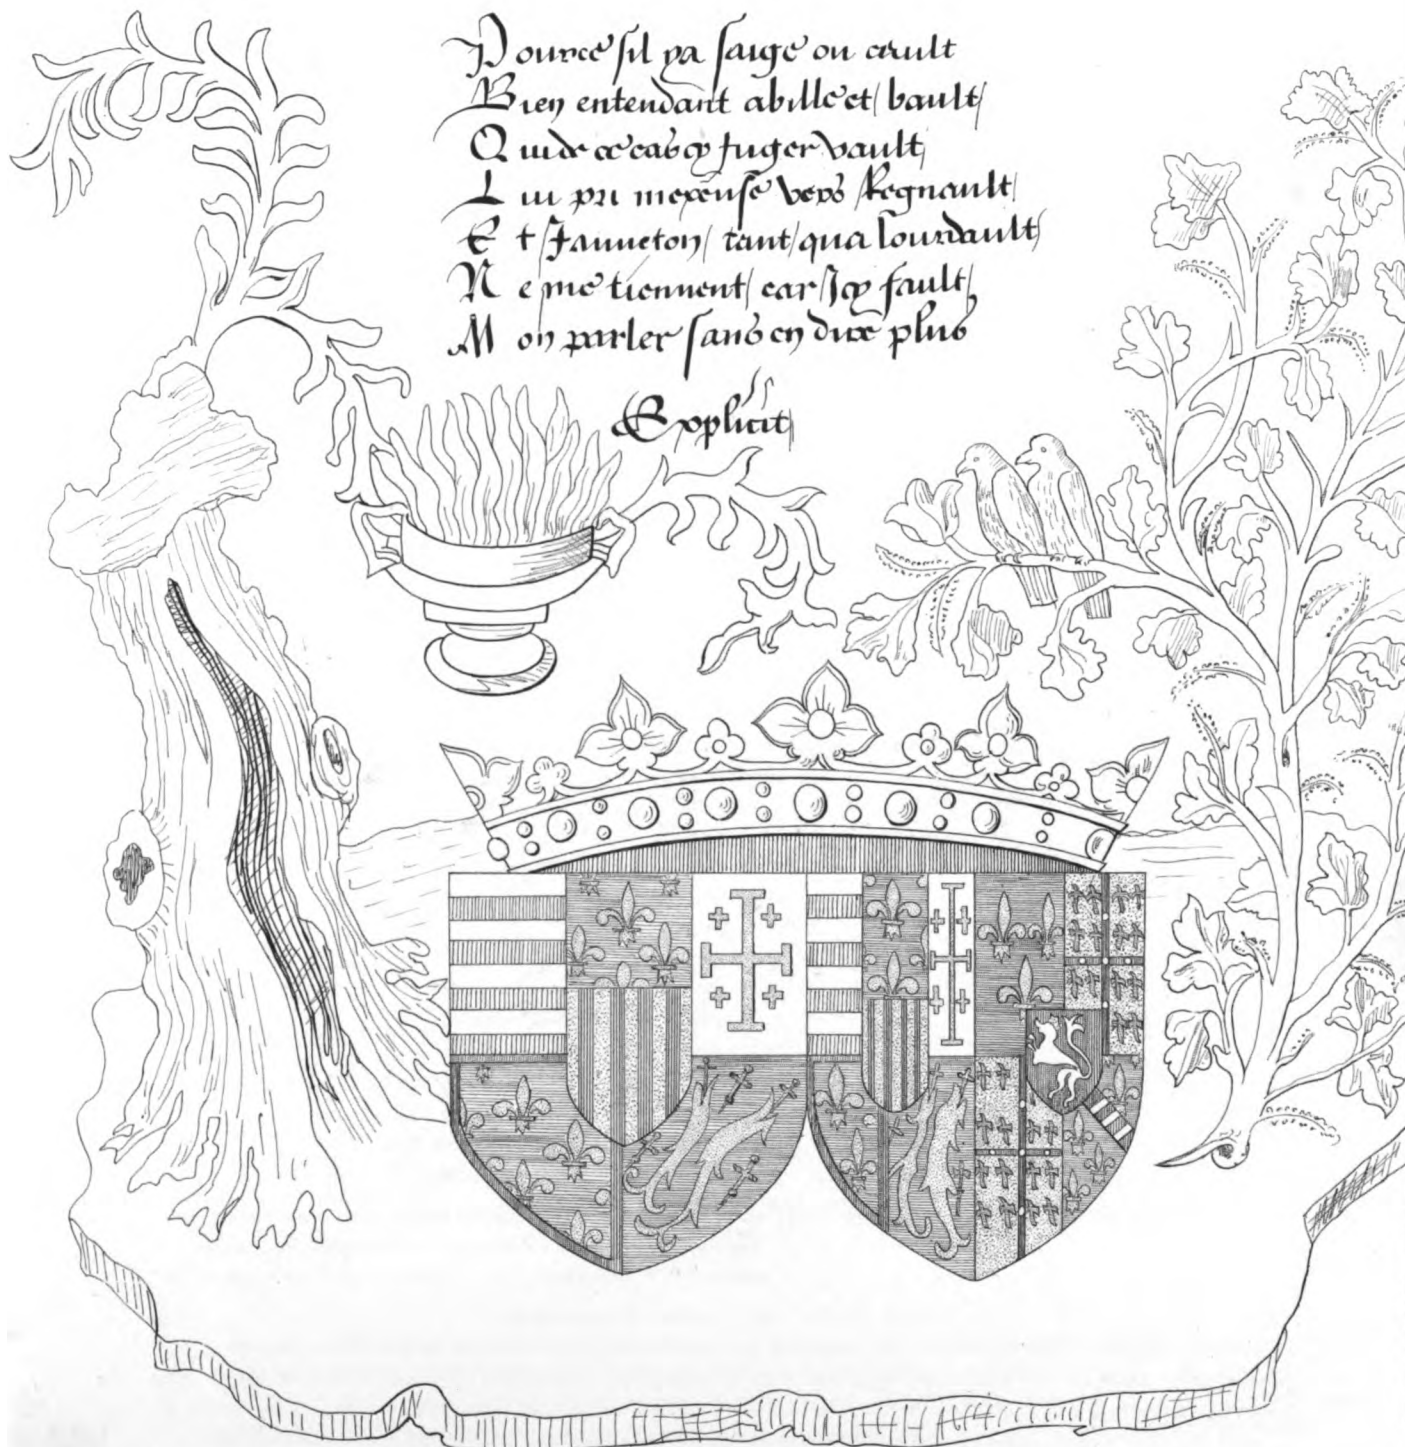 Pource sil ya saige ou cault
Bien entendant abille et / bault /
Qui de ce cas cy juger vault /
Lui pri mexcuse vers Regnault /
Et / Janneton / tant / qua lourdault /
Ne me tiennent / car / Icy fault /
Mon parler sans en dire plus
Explicit /